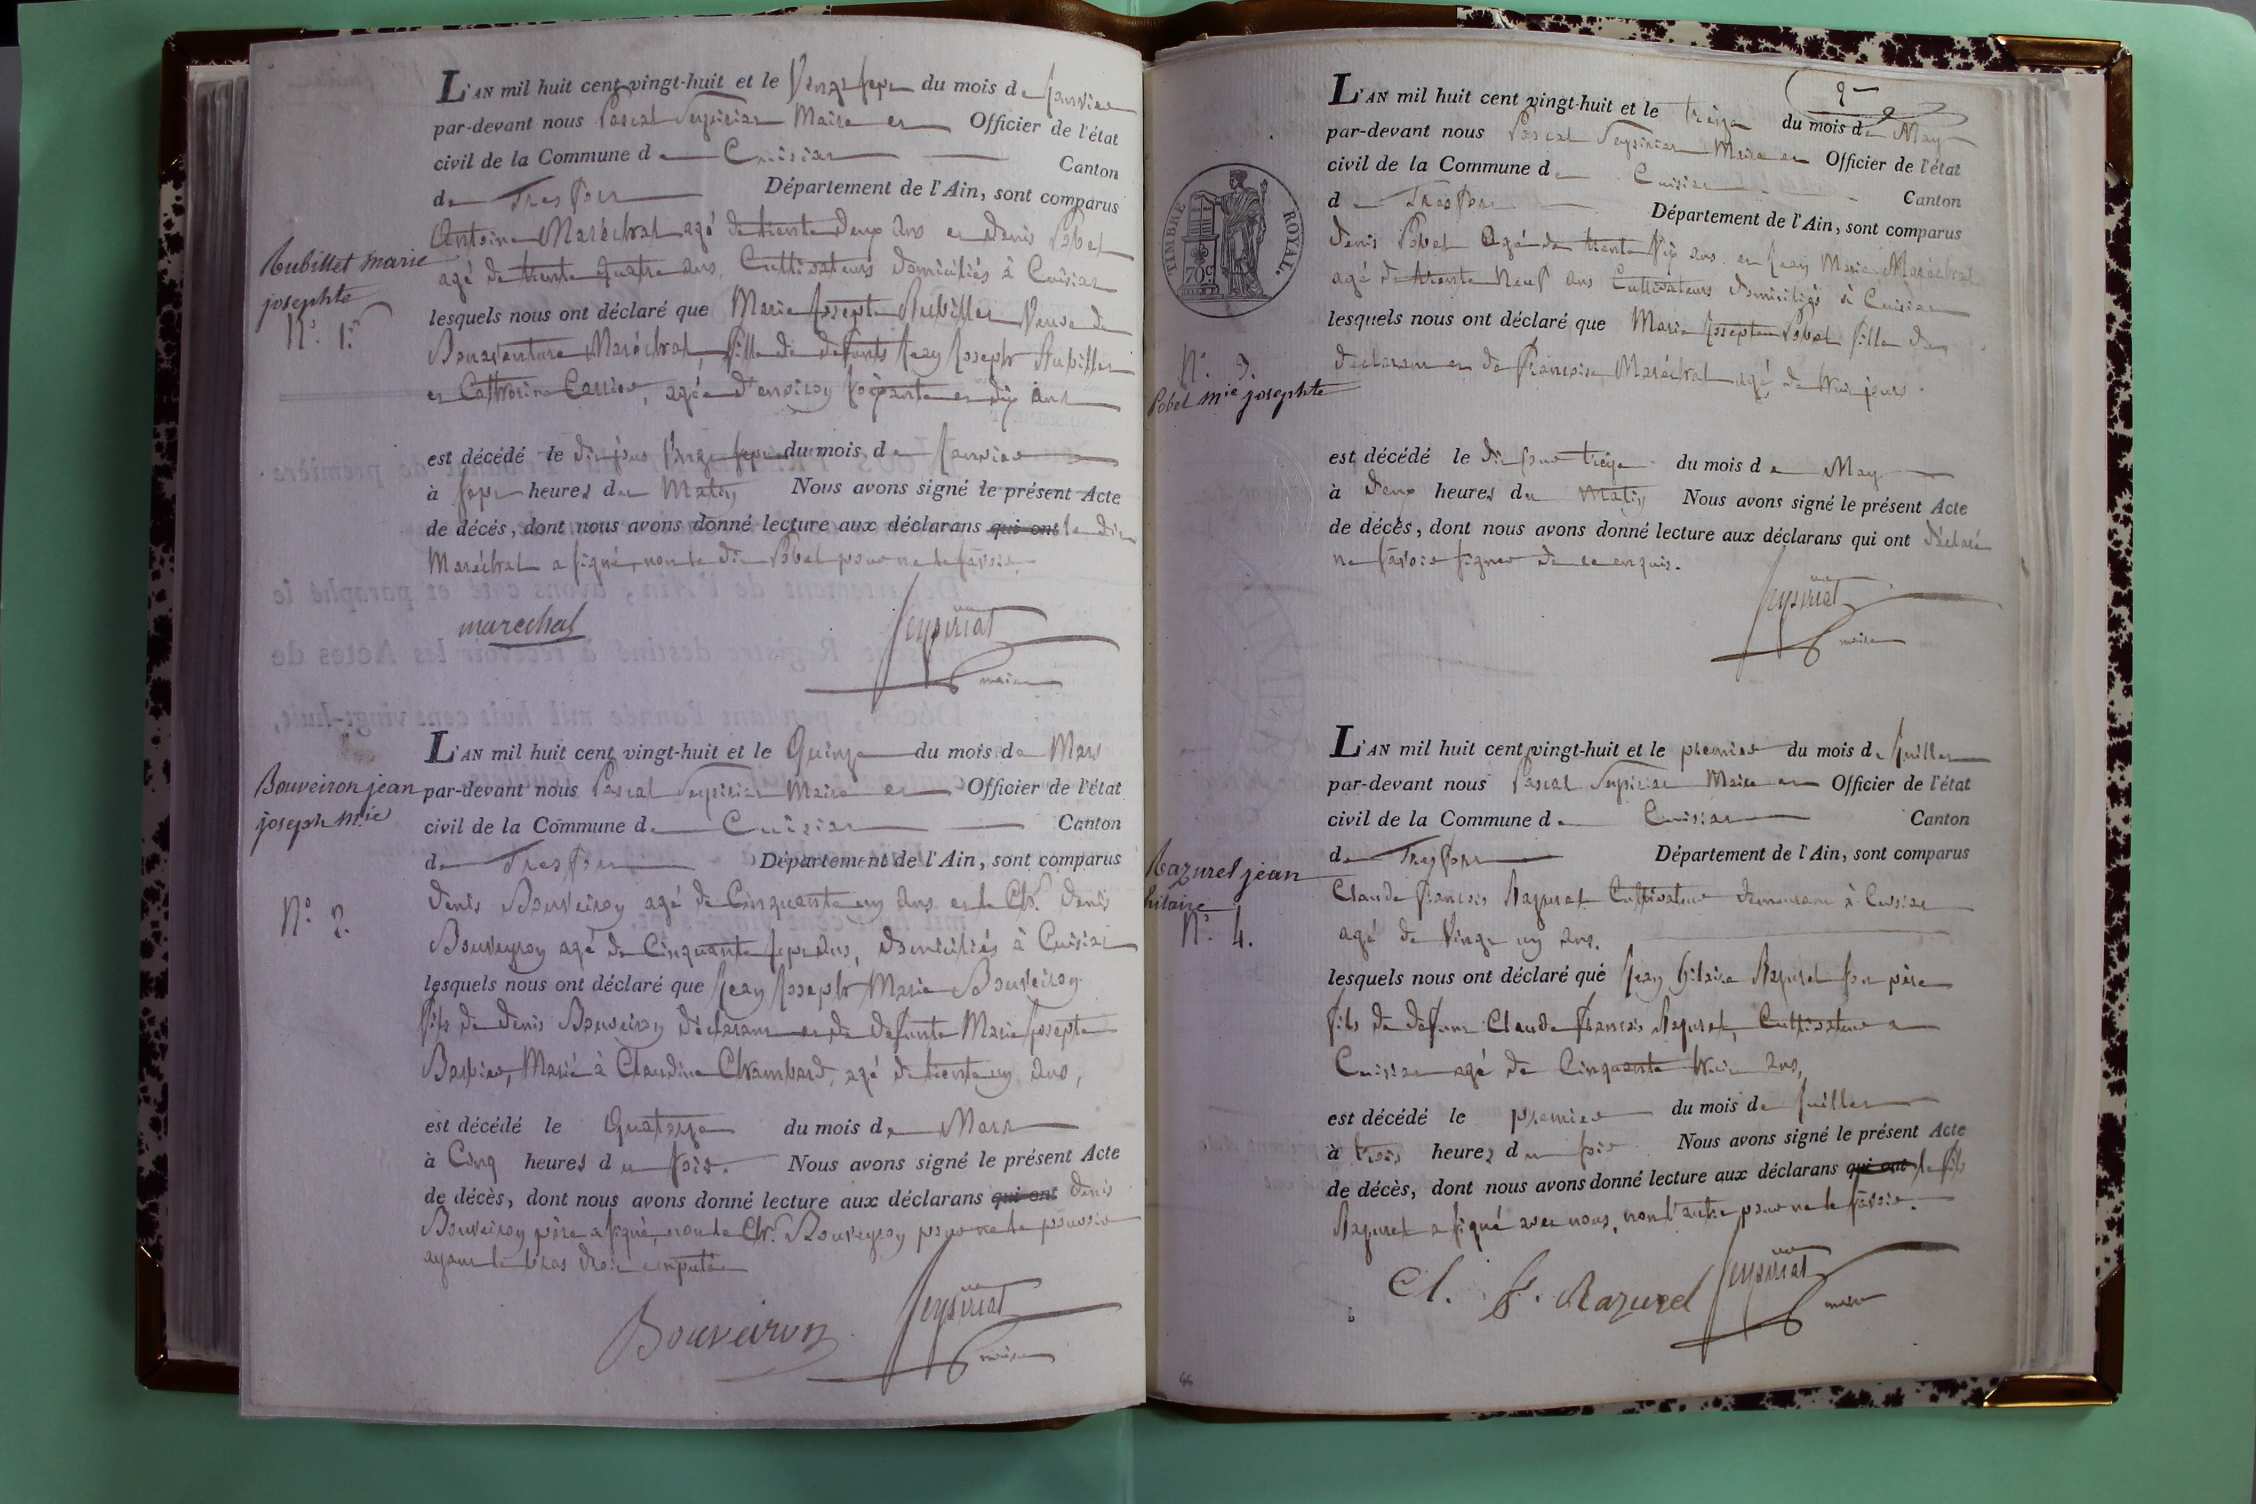 L'AN mil huit cent vingt-huit et le Vingt sept du mois de Janvier
par-devant nous Pascal Seysiriat Maire et Officier de l'état
civil de la Commune de Cuisiat Canton
de Tresfort Département de l'Ain, sont comparus
Antoine Maréchal agé de trente deux ans et denis Pobel
agé de trente quatre ans, Cultivateurs domiciliés à Cuisiat
Rubillet marie
josephte
N.° 1.er
lesquels nous ont déclaré que Marie Josepte Rubillet Veuve de
Bonaventure Maréchal, fille de defunts Jean Joseph Rubillet
et Catherine Carrier, agée d'environ soixante et dix ans
est décédé le dit jour Vingt sept du mois de Janvier
à sept heures du Matin Nous avons signé le présent Acte
de décés, dont nous avons donné lecture aux déclarans qui ont le dit
Maréchal a signé, non le dit Pobel pour ne le savoir.
marechal Seysiriat
maire
L'AN mil huit cent vingt-huit et le Quinze du mois de Mars
Bouveiron jean
joseph m.ie
par-devant nous Pascal Seysiriat Maire et Officier de l'état
civil de la Commune de Cuisiat Canton
de Tresfort Département de l'Ain, sont comparus
N.° 2.
denis Bouveiron agé de Cinquante un ans et le Ch.r denis
Bouveyron agé de Cinquante sept ans, domiciliés à Cuisiat
lesquels nous ont déclaré que Jean Joseph Marie Bouveiron
fils de denis Bouveiron déclarant et de defunte Marie Josepte
Barbier, Marié à Claudine Chambard, agé de trente un ans,
est décédé le Quatorze du mois de Mars
à Cinq heures du soir. Nous avons signé le présent Acte
de décès, dont nous avons donné lecture aux déclarans qui ont denis
Bouveiron père a signé, non le Ch.r Bouveyron pour ne le pouvoir
ayant le bras droit amputé
Bouveiron Seysiriat
maire
2
L'AN mil huit cent vingt-huit et le treize du mois de May
par-devant nous Pascal Seysiriat Maire et Officier de l'état
civil de la Commune de Cuisiat Canton
de Tresfort Département de l'Ain, sont comparus
TIMBRE ROYAL.
70c
denis Pobel Agé de trente six ans et Jean Marie Maréchal
agé de trente neuf ans Cultivateurs domiciliés à Cuisiat
lesquels nous ont déclaré que Marie Josepte Pobel fille du
N.° 3.
Pobel m.ie josephte
déclarant et de Françoise Maréchal agé, de huit jours.
est décédé le dit jour treize du mois de May
à deux heures du Matin Nous avons signé le présent Acte
de décès, dont nous avons donné lecture aux déclarans qui ont déclaré
ne savoir signer de ce enquis.
Seysiriat
maire
L'AN mil huit cent vingt-huit et le premier du mois de Juillet
par-devant nous Pascal Seysiriat Maire et Officier de l'état
civil de la Commune de Cuisiat Canton
de Tresfort Département de l'Ain, sont comparus
Razurel jean
hilaire
N.° 4.
Claude françois Razurel Cultivateur demeurant à Cuisiat
agé de Vingt un ans.
lesquels nous ont déclaré que Jean hilaire Razurel son père
fils de defunt Claude françois Razurel, Cultivateur a
Cuisiat agé de Cinquante huit ans,
est décédé le premier du mois de Juillet
à trois heures du soir Nous avons signé le présent Acte
de décès, dont nous avons donné lecture aux déclarans qui ont le fils
Razurel a signé avec nous, non l'autre pour ne le savoir.
Cl. f. Razurel Seysiriat
maire